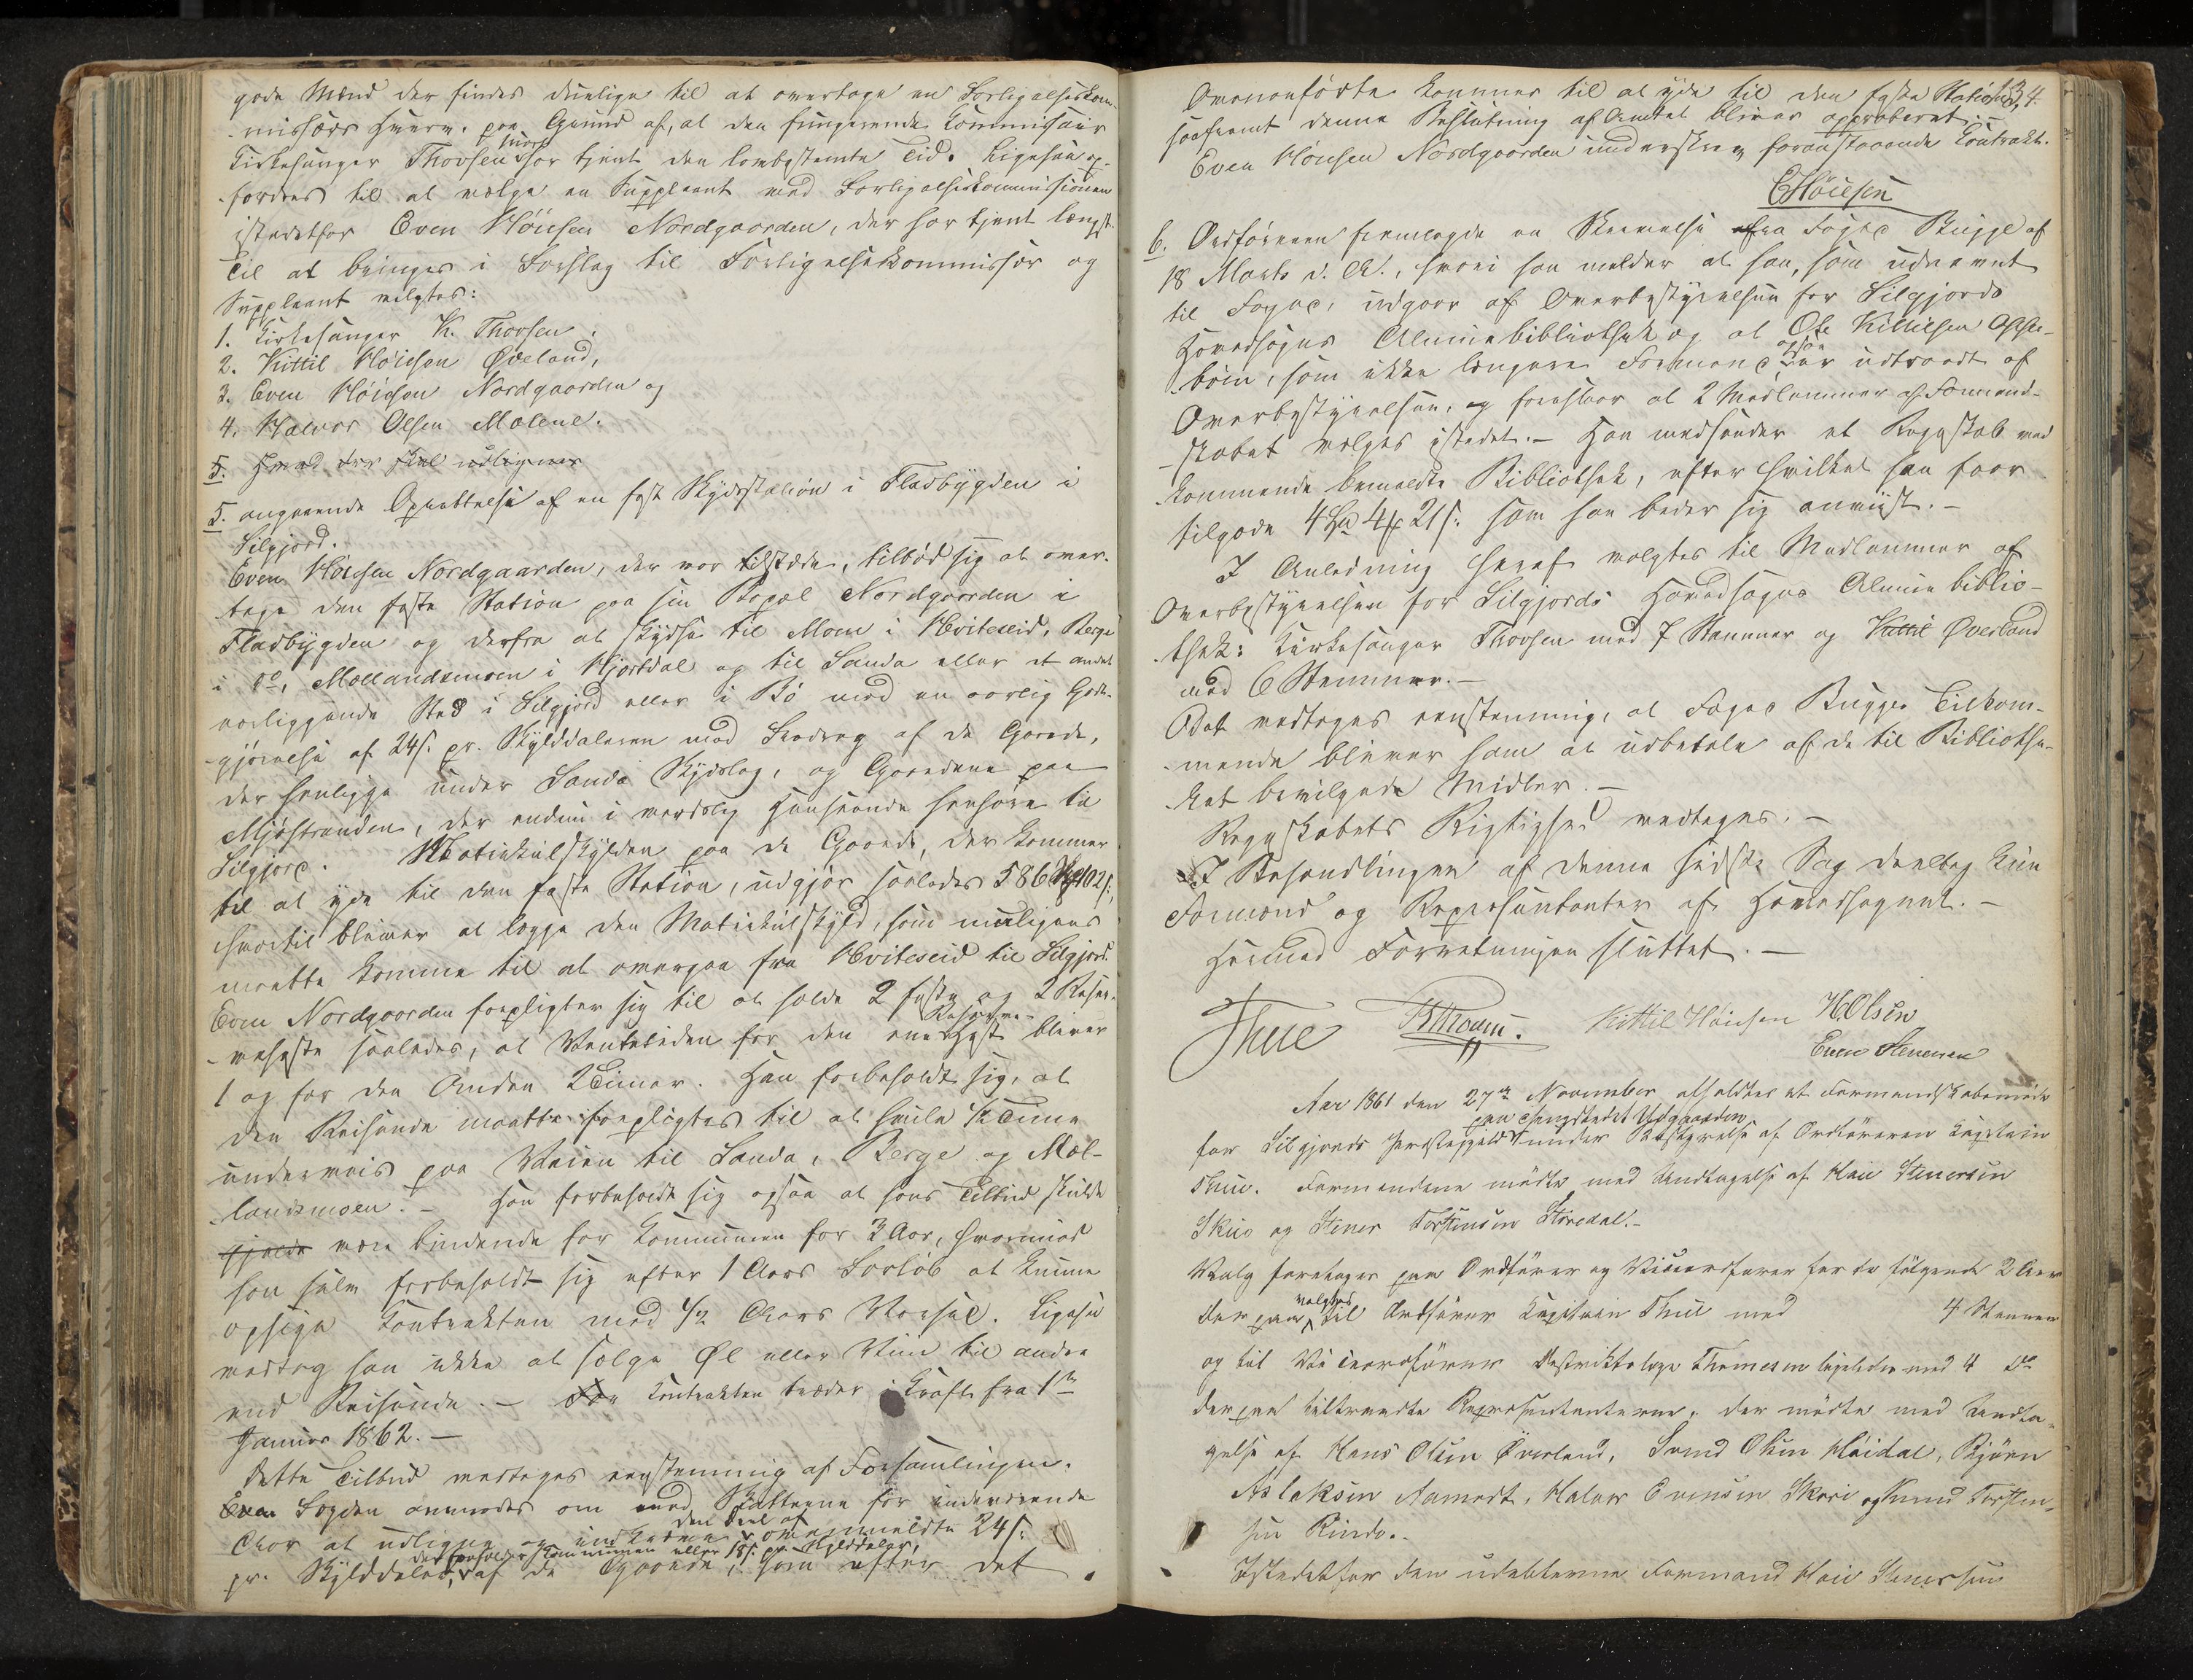 gode Mænd der findes duelige til at overtage en Forligelseskom-
missærs Hverv, paa Grund af, at den fungerende Kommissair
Kirkesanger Thorsen snart har tjent den lovbestemte Tid. Ligesaa op-
fordres til at vælge en Suppleant ved Forligelseskommissionen
istedetfor Even Høiesen Nordgaarden, der har tjent længst.
Til at bringes i Forslag til Forligelseskommissær og
Suppleant valgtes:
1. Kirkesanger K. Thorsen.
2. Kittil Høiesen Øveland,
3. Even Høiesen Nordgaarden og
4. Halvor Olsen Molene.
5. Hvad der skal udlignes
5. angaaende Oprettelse af en fast Skydsstation i Fladbygden i
Silgjord.
Even Høiesen Nordgaarden, der var tilstede, tilbød sig at over-
tage den faste Station paa sin Bopæl Nordgaarden i
Fladbygden og derfra at skydse til Moen i Hviteseid, Berge
i do, Mollandsmoen i Hjertdal og til Sanda eller et andet
nærliggende Sted i Silgjord eller i Bø mod en aarlig Godt-
gjørelse af 24 s. pr. Skylddaleren med Fradrag af de Gaarde,
der henligge under Sanda Skydslag, og Gaardene paa
Mjøstranden, der endnu i verdslig Henseende henhøre til
Silgjord. Matrikulskylden paa de Gaarde, der kommer
til at yde til den faste Station, udgjør saaledes 586 102 s.,
hvortil bliver at lægge den Matrikulskyld, som muligens
maatte komme til at overgaa fra Hviteseid til Silgjord.
Even Nordgaarden forpligter sig til at holde 2 faste og 2 Reser-
veheste saaledes, at Ventetiden for den ene Reserve-Hest bliver
1 og for den Anden 2 Timer. Han forbeholdt sig, at
den Reisende maatte forpligtes til at hvile ½ Time
underveis paa Veien til Sanda, Berge og Mol-
landsmoen. – Han forbeholdt sig ogsaa at hans Tilbud skulde
gjælde være bindende for Kommunen for 3 Aar, hvorimod
han selv forbeholdt sig efter 1 Aars Forløb at kunne
opsige Kontrakten med ½ Aars Varsel. Ligesaa
vedtog han ikke at sælge Øl eller Viin til andre
end Reisende. – For Kontrakten træder i Kraft fra 1ste
Januar 1862. –
Dette Tilbud vedtoges eenstemmig af Forsamlingen.
Even Fogden anmodes om med Skatterne for indeværende
Aar at udligne og indkræve den Deel af ovenmeldte 24 s.
pr. Skylddaler, der forholder Kommunen eller 18 s. pr. Skylddaler, af de Gaarde, som efter det
134.
Ovenanførte kommer til at yde til den faste Station,
saafremt denne Beslutning af Amtet bliver approberet. –
Even Høiesen Nordgaarden underskrev foranstaaende Kontrakt.
EHöiesen
6. Ordføreren fremlagde en Skrivelse fra Foged Bugge af
18 Marts d. A., hvori han melder at han, som udnævnt
til Foged, udgaar af Overbestyrelsen for Silgjords
Hovedsogns Almuebibliothek og at Ole Kittilsen Opste-
bøen, som ikke længere Formand ogsaa har udtraadt af
Overbestyrelsen, og foreslaar at 2 Medlemmer af Formand-
skabet vælges istedet. – Han medsender et Regnskab ved-
kommende bemeldte Bibliothek, efter hvilket han faar
tilgode 4 Spd 4 21 s. som han beder sig anviist. –
I Anledning heraf valgtes til Medlemmer af
Overbestyrelsen for Silgjords Hovedsogns Almuebiblio-
thek: Kirkesanger Thorsen med 7 Stemmer og Kittil Øverland
med 6 Stemmer. –
Det vedtoges eenstemmig, at Foged Bugges Tilkom-
mende bliver ham at udbetale af de til Bibliothe-
ket bevilgede Midler. –
Regnskabets Rigtighed vedtoges. –
I Behandlingen af denne sidste Sag deeltog kun
Formænd og Repræsentanter af Hovedsognet. –
Hermed Forretningen sluttet. –
Thue Kittil Höiesen H.Olsen
Even Stenersen
Aar 1861 den 27de November afholdtes et Formandskabsmøde
for Silgjords Præstegjeld paa Thingstedet Utgaarden under Bestyrelse af Ordføreren Kaptein
Thue. Formændene mødte med Undtagelse af Haie Stenersen
Skuo og Stener Torstensen Storedal. –
Valg foretoges paa Ordfører og Viceordfører for de følgende 2 Aar
der paa valgtes til Ordfører Kapitain Thue med 4 Stemmer
og til Viceordfører Distriktslæge Thomesen ligeledes med 4 do
derpaa tiltraadte Repræsentanterne, der mødte med Undta-
gelse af Hans Olsen Øverland, Svend Olsen Høidal, Bjørn
Aslaksen Aamodt, Halvor Evensen Skori og Knud Torsten-
sen Rinde. –
Istedetfor den udeblevne Formand Haie Stenersen